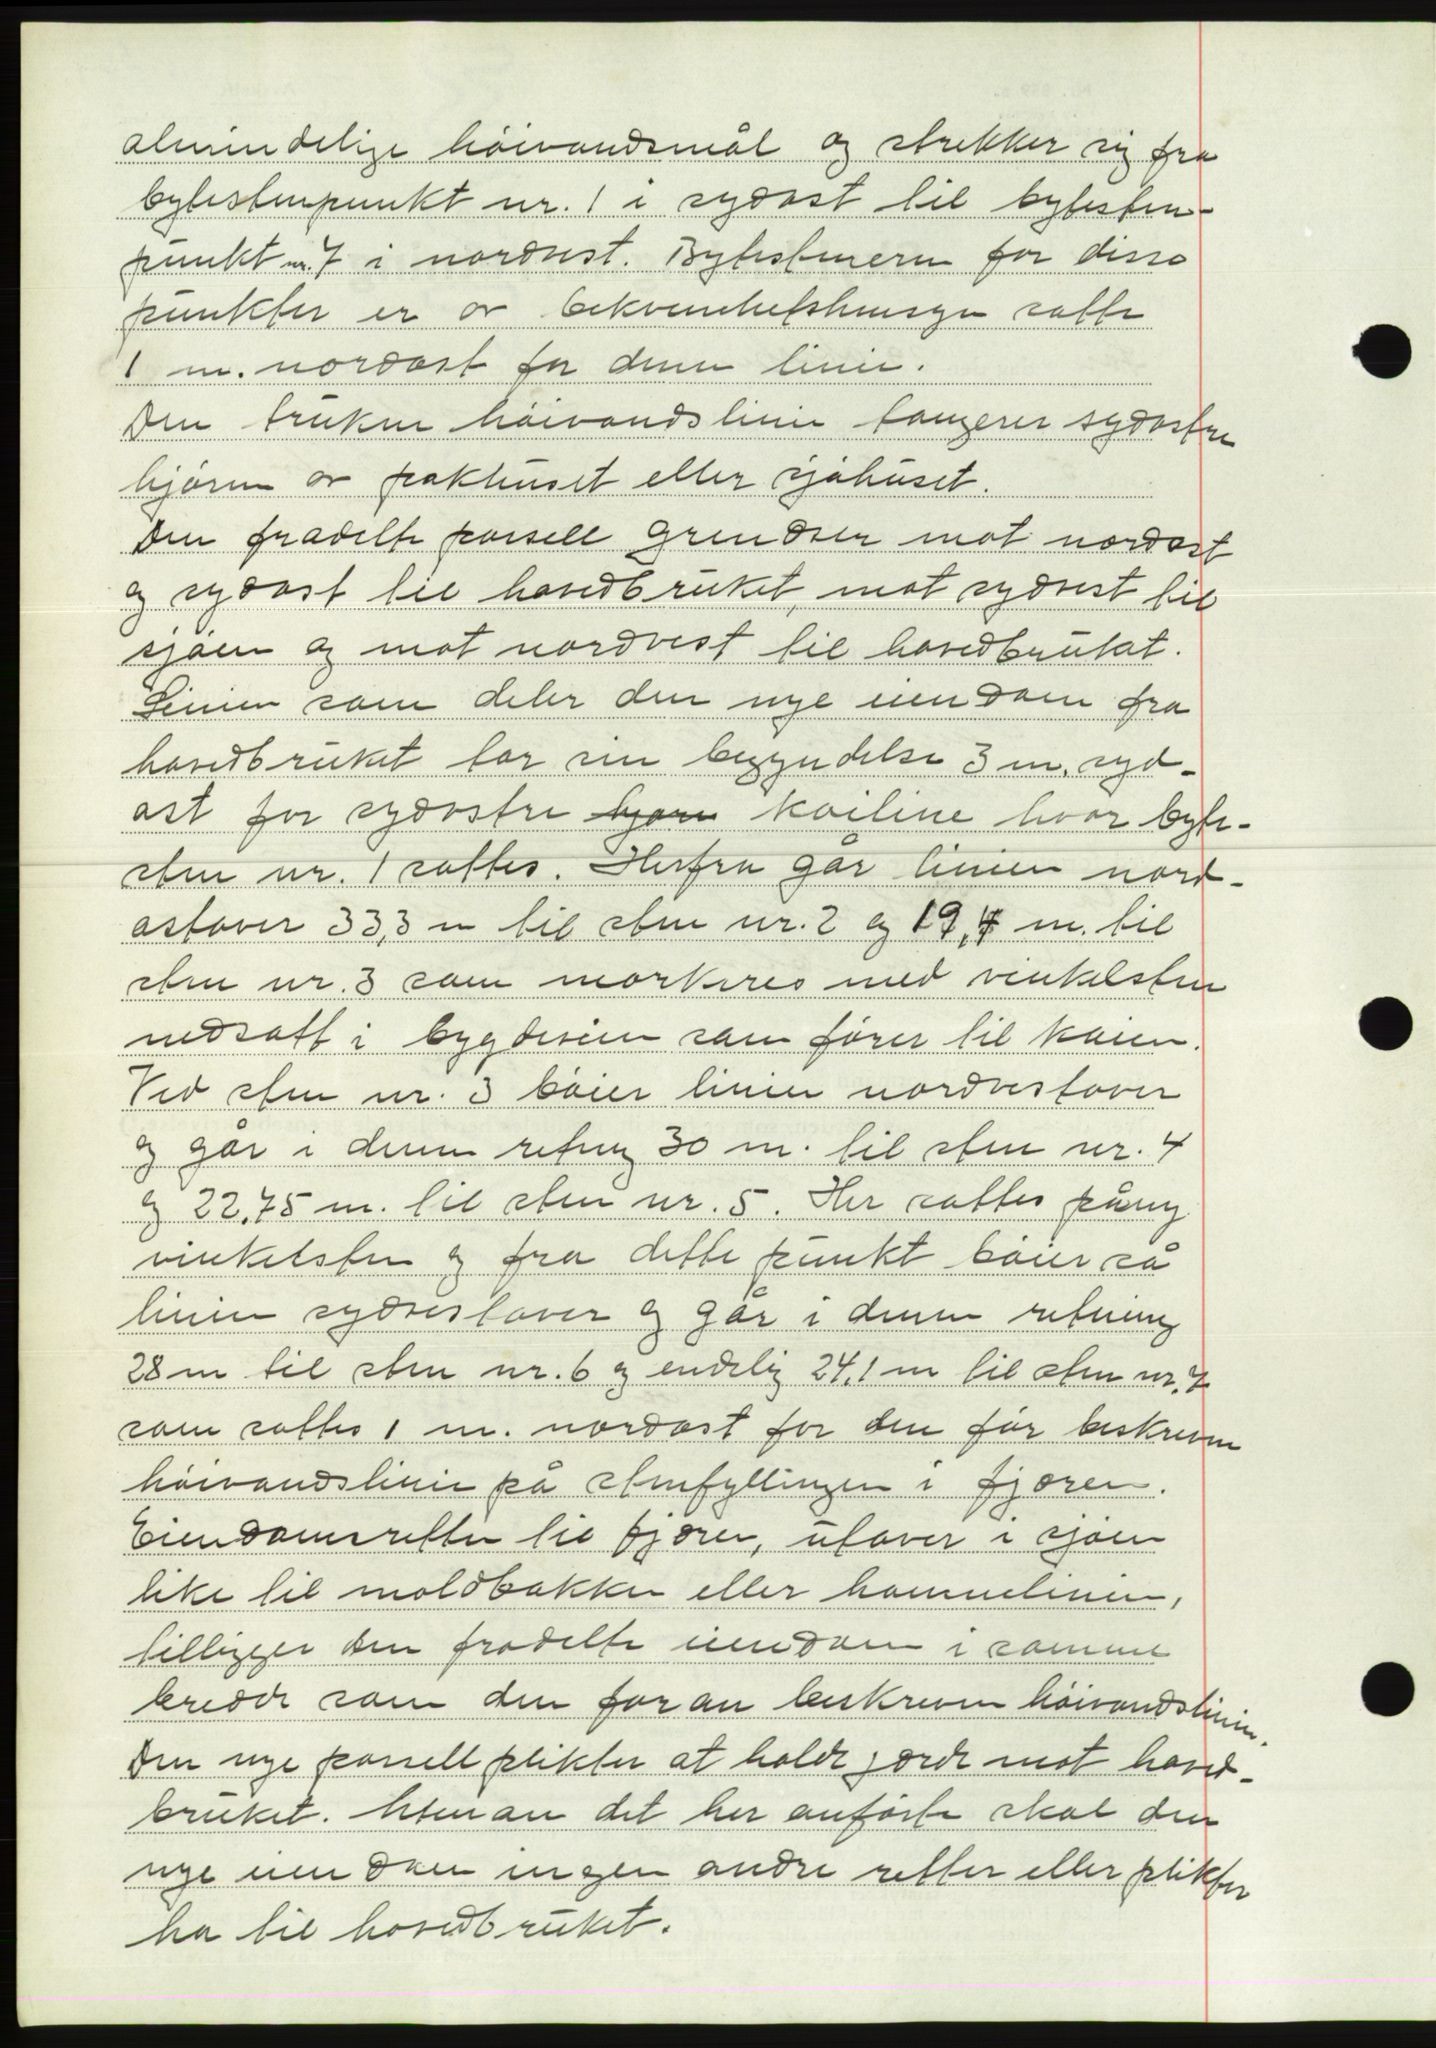 almindelige höivandsmål og strekker sig fra
bytestenpunkt nr. 1 i sydost til bytesten-
punkt nr. 7 i nordvest. Bytestenerne for disse
punkter er av bekvemhetshensyn satte
1 m. nordost for denne linie.
Den trukne höivandslinie tangerer sydostre
hjörne av pakhuset eller sjöhuset.
Den fradelte parsell grendser mot nordost
og sydost til hovedbruket, mot sydvest til
sjöen og mot nordvest til hovedbruket.
Linien som deler den nye eiendom fra
hovedbruket tar sin begyndelse 3 m. syd-
ost for sydostre hjørne kailine hvor byte-
sten nr. 1 sattes. Herfra går linien nord-
ostover 33,3 m til sten nr. 2 og 19,4 m. til
sten nr. 3 som markeres med vinkelsten
nedsatt i bygdeveien som förer til kaien.
Ved sten nr. 3 böier linien nordvestover
og går i denne retning 30 m. til sten nr. 4
og 22,75 m. til sten nr. 5. Her sattes påny
vinkelsten og fra dette punkt böier så
linien sydvestover og går i denne retning
28 m til sten nr. 6 og endelig 24,1 m til sten nr. 7
som sattes 1 m. nordost for den för beskrevne
höivandslinie på stenfyllingen i fjæren.
Eiendomsretten til fjæren, utover i sjöen
like til moldbakken eller havnelinien,
tilligger den fradelte eiendom i samme
bredde som den foran beskrevne höivandslinien.
Den nye parsell plikter at holde gjærde mot hoved-
bruket. Utenom det her anförte skal den
nye eiendom ingen andre retter eller plikter
ha til hovedbruket.